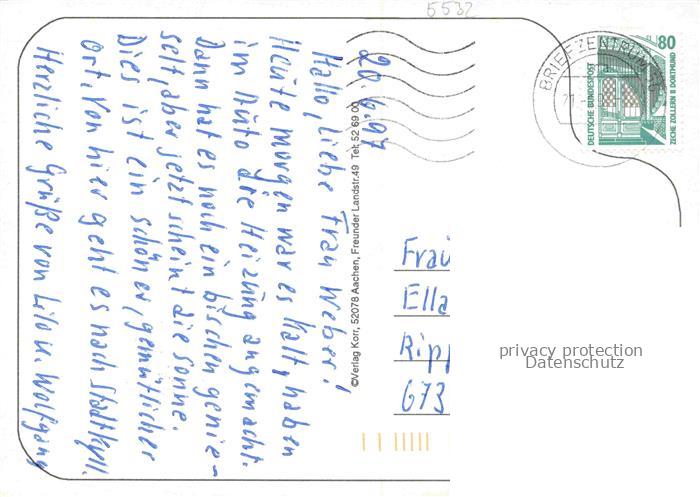 5532
20.6.97
Hallo, liebe Frau Weber!
Heute morgen war es kalt, haben
im Auto die Heizung angemacht.
Dann hat es noch ein bischen genie-
selt, aber jetzt scheint die Sonne.
Dies ist ein schöner, gemütlicher
Ort. Von hier geht es nach Stadtkyll.
Herzliche Grüße von Lilo u. Wolfgang
©Verlag Korr, 52078 Aachen, Freunder Landstr.49 Tel: 52 69 00
BRIEFZENTRUM
21.
80
DEUTSCHE BUNDESPOST
ZECHE ZOLLERN II DORTMUND
Frau
Ella
Ripp
673
privacy protection
Datenschutz